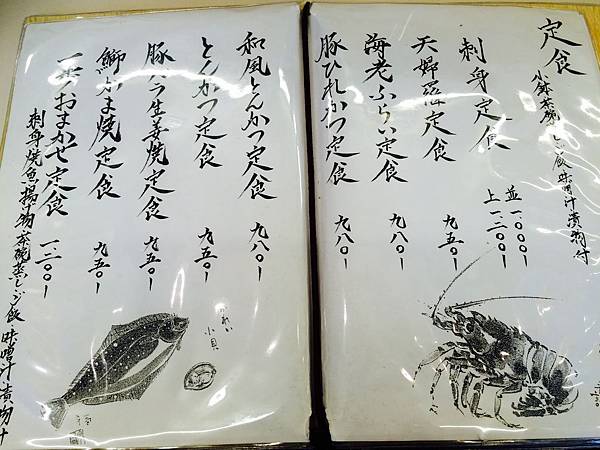 定食
小鉢茶碗むしご飯味噌汁漬物付
刺身定食
並一,〇〇〇ー
上一,二〇〇ー
天婦羅定食 九五〇ー
海老ふらい定食 九八〇ー
豚ひれかつ定食 九八〇ー
和風とんかつ定食 九八〇ー
とんかつ定食 九五〇ー
豚バラ生姜焼定食 九五〇ー
鰤かま焼定食 九五〇ー
おまかせ定食 一,三〇〇ー
刺身焼魚揚げ物茶碗蒸しご飯味噌汁漬物付
かれい
小貝